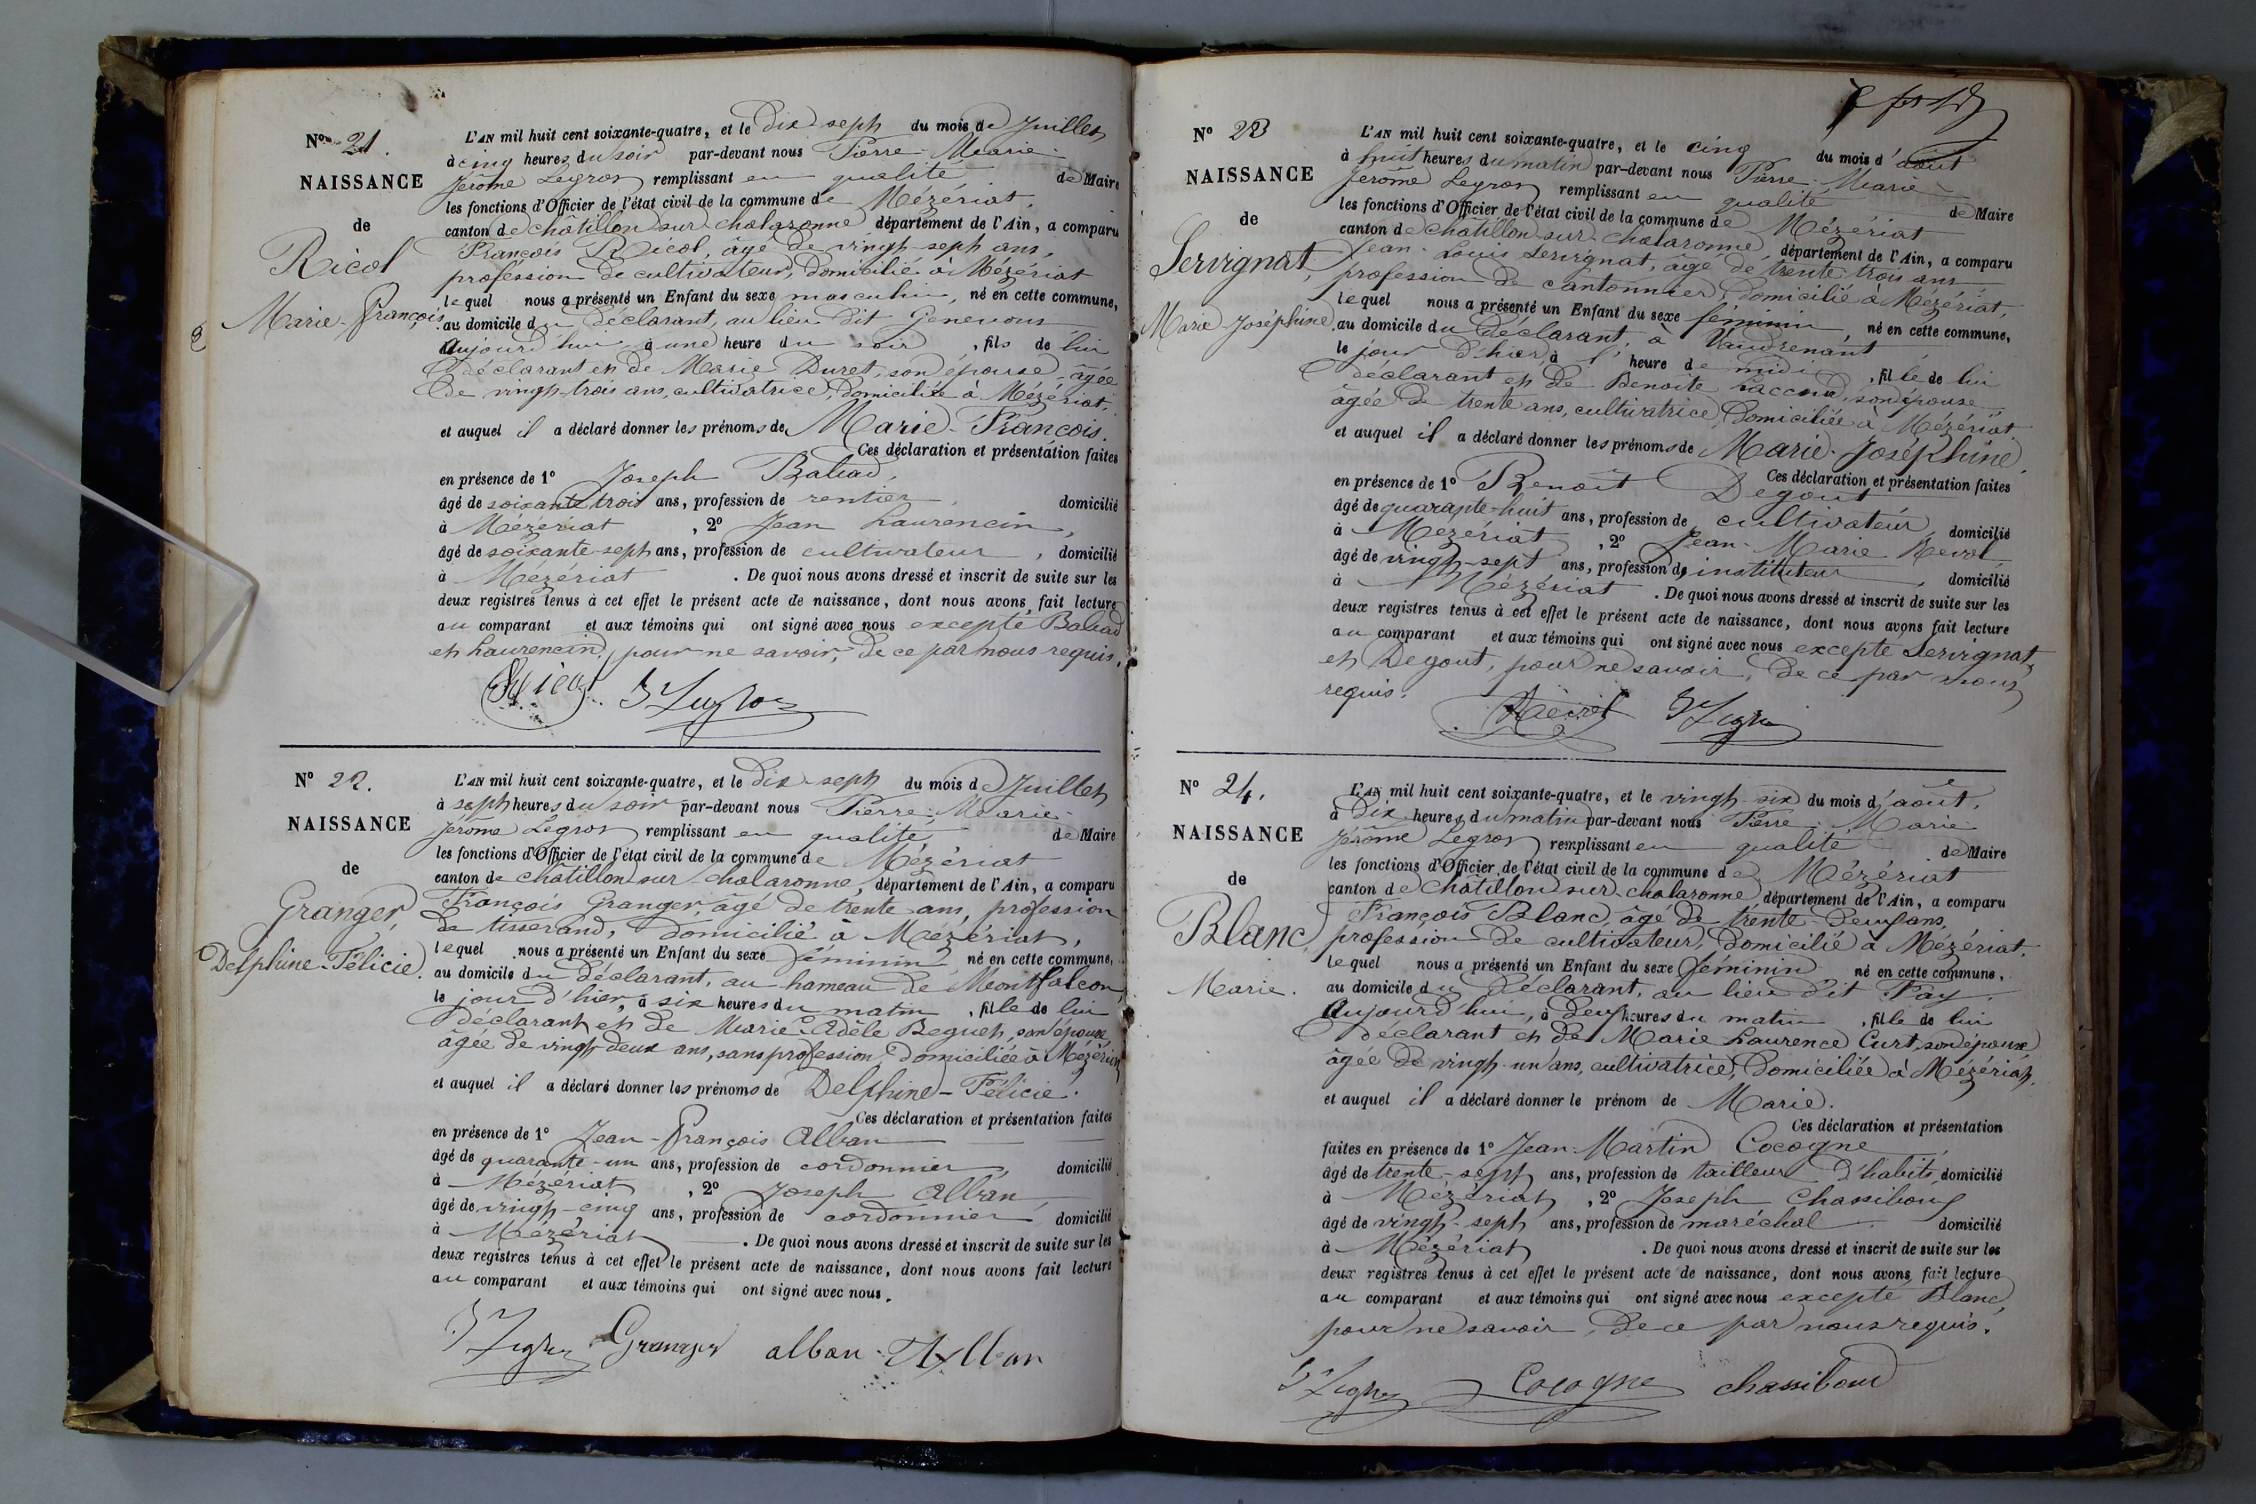 N° 21.
NAISSANCE
de
Ricol
Marie-François.
L'AN mil huit cent soixante-quatre, et le dix-sept du mois de Juillet
à cinq heures du soir par-devant nous Pierre-Marie-
Jérôme Legros remplissant en qualité de Maire
les fonctions d'Officier de l'état civil de la commune de Mézériat,
canton de châtillon sur chalaronne département de l'Ain, a comparu
François Ricol, âgé de vingt-sept ans,
profession de cultivateur, domicilié à Mézériat
lequel nous a présenté un Enfant du sexe masculin, né en cette commune,
au domicile du déclarant, au lieu dit Genevous
aujourd'hui, à une heure du soir, fils de lui
déclarant et de Marie Duret, son épouse âgée
de vingt-trois ans, cultivatrice, domiciliée à Mézériat,
et auquel il a déclaré donner les prénoms de Marie-François.
Ces déclaration et présentation faites
en présence de 1° Joseph Baliad,
âgé de soixante trois ans, profession de rentier, domicilié
à Mézériat, 2° Jean Laurencin,
âgé de soixante-sept ans, profession de cultivateur, domicilié
à Mézériat. De quoi nous avons dressé et inscrit de suite sur les
deux registres tenus à cet effet le présent acte de naissance, dont nous avons fait lecture
au comparant et aux témoins qui ont signé avec nous excepté Baliad
et Laurencin, pour ne savoir, de ce par nous requis.
Ricol J Legros
N° 22.
NAISSANCE
de
Granger,
Delphine-Félicie.
L'AN mil huit cent soixante-quatre, et le dix-sept du mois de Juillet
à sept heures du soir par-devant nous Pierre-Marie-
Jérôme Legros remplissant en qualité de Maire
les fonctions d'Officier de l'état civil de la commune de Mézériat
canton de châtillon sur chalaronne, département de l'Ain, a comparu
François Granger, âgé de trente ans, profession
de tisserand, domicilié à Mézériat,
lequel nous a présenté un Enfant du sexe féminin, né en cette commune,
au domicile du déclarant, au hameau de Montfalcon,
le jour d'hier, à six heures du matin, fille de lui
déclarant et de Marie-Adèle Beguet, son épouse
âgée de vingt-deux ans, sans profession, domiciliée à Mézériat
et auquel il a déclaré donner les prénoms de Delphine-Félicie.
Ces déclaration et présentation faites
en présence de 1° Jean-François Alban
âgé de quarante-un ans, profession de cordonnier, domicilié
à Mézériat, 2° Joseph Alban,
âgé de vingt-cinq ans, profession de cordonnier domicilié
à Mézériat. De quoi nous avons dressé et inscrit de suite sur les
deux registres tenus à cet effet le présent acte de naissance, dont nous avons fait lecture
au comparant et aux témoins qui ont signé avec nous.
J Legros Granger alban Alban
N° 23
NAISSANCE
de
Servignat,
Marie-Joséphine.
L'AN mil huit cent soixante-quatre, et le cinq du mois d'août
à huit heures du matin par-devant nous Pierre-Marie-
Jérôme Legros remplissant en qualité de Maire
les fonctions d'Officier de l'état civil de la commune de Mézériat
canton de châtillon sur chalaronne, département de l'Ain, a comparu
Jean-Louis Servignat, âgé de trente-trois ans
profession de cantonnier, domicilié à Mézériat,
lequel nous a présenté un Enfant du sexe féminin, né en cette commune,
au domicile du déclarant, à Vaudrenant
le jour d'hier, à l'heure de midi, fille de lui
déclarant et de Benoite Raccud, son épouse
âgée de trente ans, cultivatrice, domiciliée à Mézériat.
et auquel il a déclaré donner les prénoms de Marie-Joséphine.
Ces déclaration et présentation faites
en présence de 1° Benoît Degout
âgé de quarante-huit ans, profession de cultivateur, domicilié
à Mézériat, 2° Jean-Marie Revel
âgé de vingt-sept ans, profession de instituteur, domicilié
à Mézériat. De quoi nous avons dressé et inscrit de suite sur les
deux registres tenus à cet effet le présent acte de naissance, dont nous avons fait lecture
au comparant et aux témoins qui ont signé avec nous excepté Servignat,
et Degout, pour ne savoir, de ce par nous
requis.
Revel J Legros
N° 24.
NAISSANCE
de
Blanc,
Marie.
L'AN mil huit cent soixante-quatre, et le vingt-six du mois d'août,
à dix heures du matin par-devant nous Pierre-Marie-
Jérôme Legros remplissant en qualité de Maire
les fonctions d'Officier de l'état civil de la commune de Mézériat
canton de châtillon sur chalaronne, département de l'Ain, a comparu
François Blanc, âgé de trente-deux ans,
profession de cultivateur, domicilié à Mézériat.
lequel nous a présenté un Enfant du sexe féminin né en cette commune,
au domicile du déclarant, au lieu dit Fay,
aujourd'hui, à deux heures du matin, fille de lui
déclarant et de Marie Laurence Curt, son épouse
âgée de vingt-un ans, cultivatrice, domiciliée à Mézériat,
et auquel il a déclaré donner le prénom de Marie.
Ces déclaration et présentation
faites en présence de 1° Jean-Martin Cocogne,
âgé de trente-sept ans, profession de tailleur d'habits, domicilié
à Mézériat, 2° Joseph Chassiboud
âgé de vingt-sept ans, profession de maréchal domicilié
à Mézériat. De quoi nous avons dressé et inscrit de suite sur les
deux registres tenus à cet effet le présent acte de naissance, dont nous avons fait lecture
au comparant et aux témoins qui ont signé avec nous excepté Blanc,
pour ne savoir, de ce par nous requis.
J Legros Cocogne chassiboud